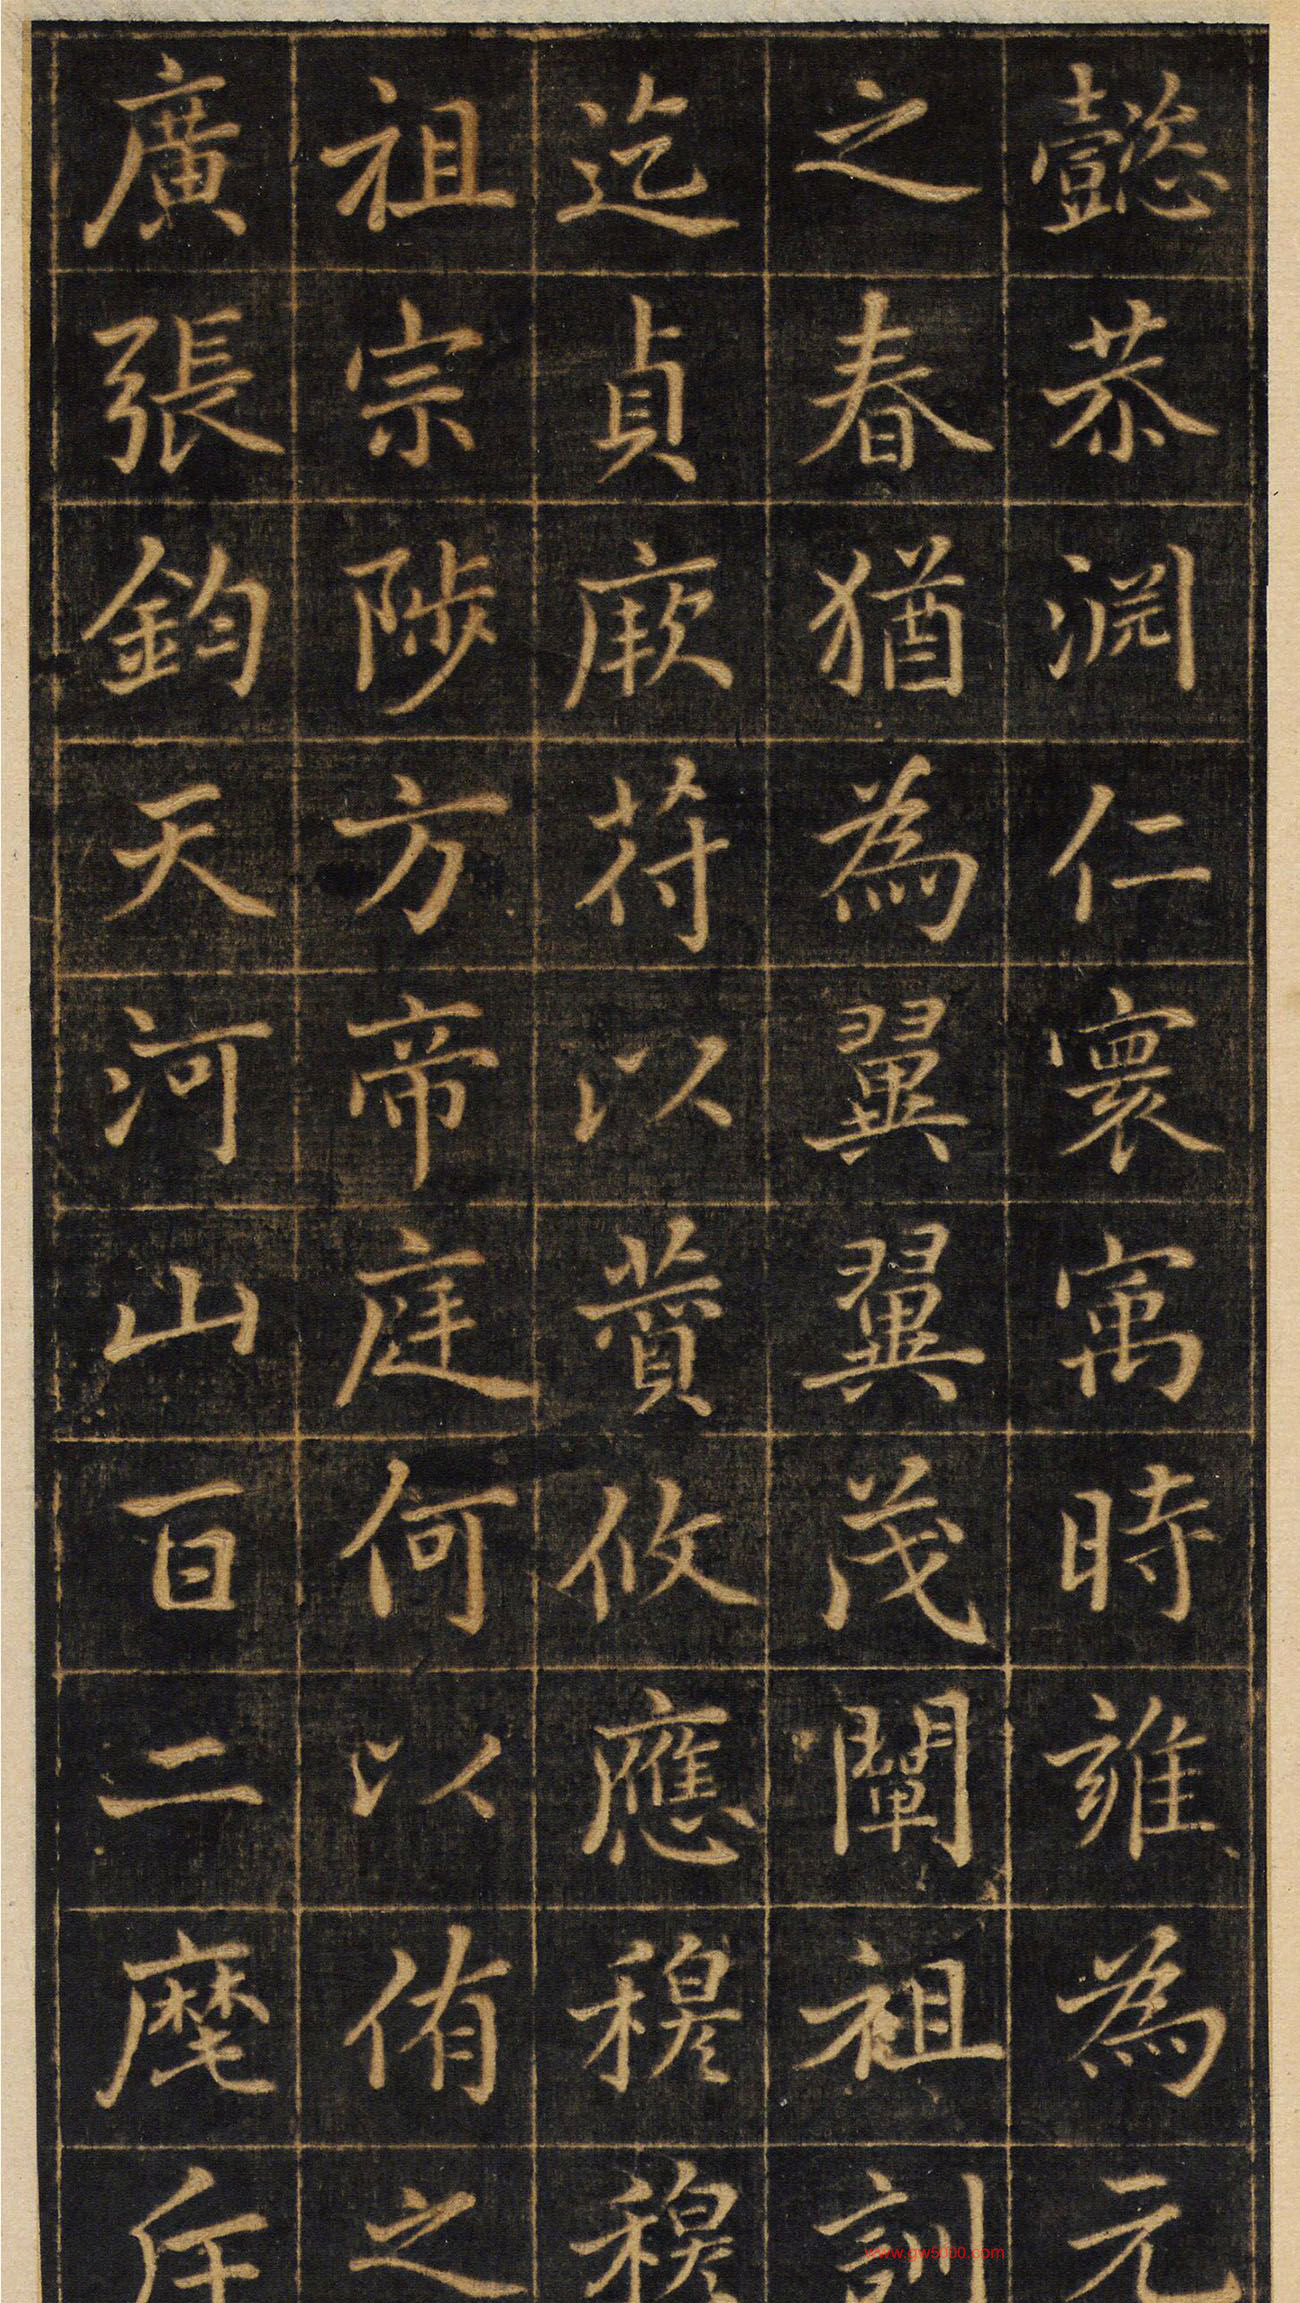 懿恭淵仁寰寓時雍為元
之春猶為翼翼茂闡祖訓
迄貞厥苻以蕡攸應穆穆
祖宗陟方帝庭何以侑之
廣張鈞天河山百二麾斥
www.gw5000.com